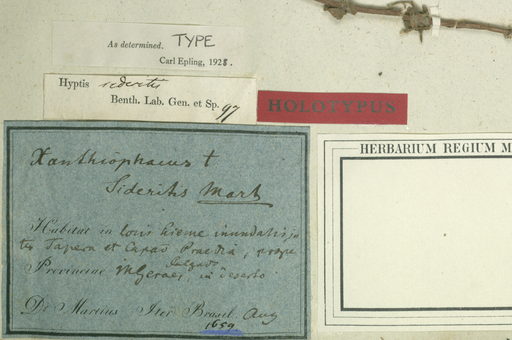 As determined. TYPE
Carl Epling, 1928.
Hyptis sideritis
Benth. Lab. Gen. et Sp. 97
HOLOTYPUS
HERBARIUM REGIUM M
Xanthiophaeus †
Sideritis Mart
Habitat in locis hieme inundatis, in
ter Tapera et Capao Praedia, prope
Salgado
Provinciae M. Geraes, in deserto
Dr Martius Iter Brasil. Aug
1659